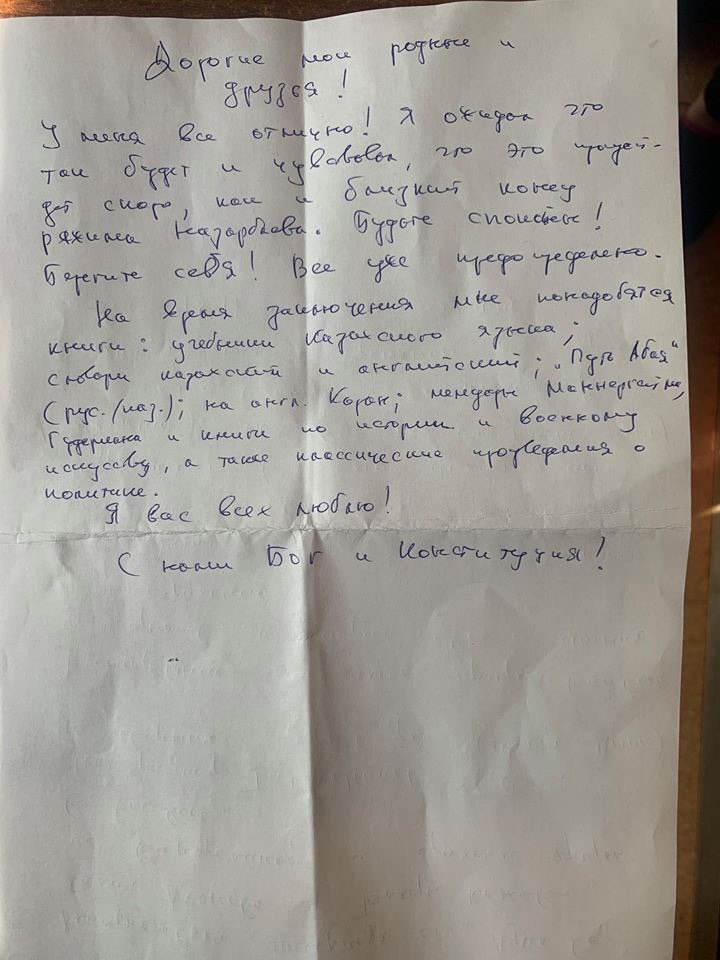 Дорогие мои родные и
друзья!
У меня все отлично! Я ожидал что
так будет и чувствовал, что это произой-
дет скоро, как и близкий конец
режима Назарбаева. Будьте спокойны!
Берегите себя! Все уже предопределено.
На время заключения мне понадобятся
книги: учебники казахского языка;
словари казахский и английский; „Путь Абая"
(рус./каз.); на англ. Коран; мемуары Маннергейма,
Гудериана и книги по истории и военному
искусству, а также классические произведения о
политике.
Я вас всех люблю!
С нами Бог и Конституция!